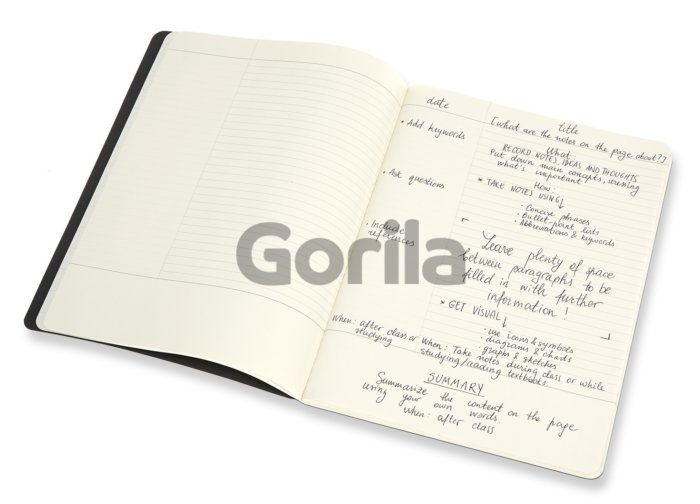 date
title
[What are the notes on the page about?]
• Add keywords
• Ask questions
• Include
references
When: after class or
studying
What:
RECORD NOTES, IDEAS AND THOUGHTS
Put down main concepts, stressing
what's important
How:
* TAKE NOTES USING
• Concise phrases
• Bullet-point lists
• Abbreviations & keywords
Leave plenty of space
between paragraphs to be
filled in with further
information!
* GET VISUAL
• use icons & symbols
• diagrams & charts
• graphs & sketches
When: Take notes during class or while
studying/reading textbooks.
SUMMARY
Summarize the content on the page
using your own words.
When: after class
Gorila